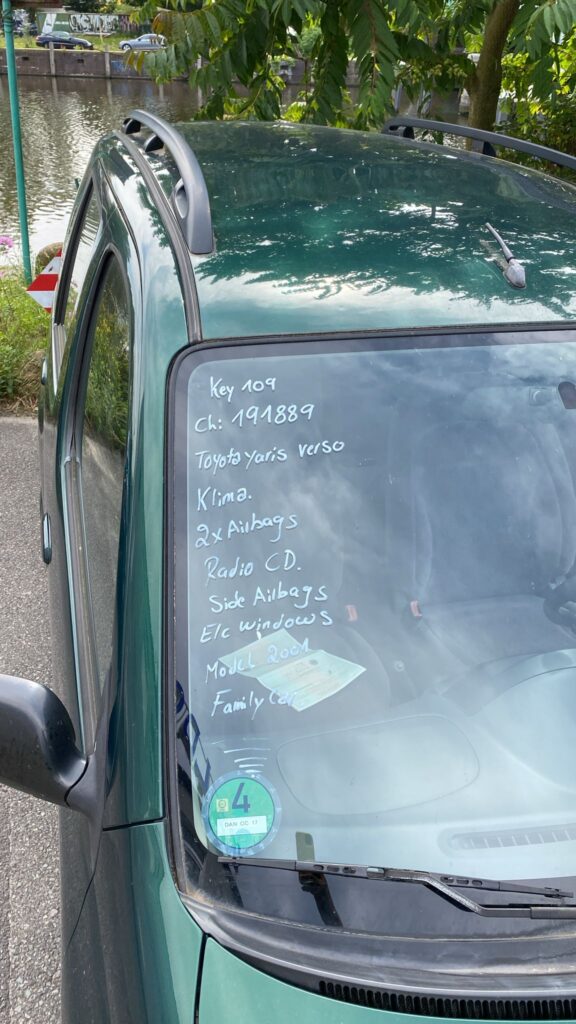 Key 109
Ch: 191889
Toyota yaris verso
Klima.
2x Airbags
Radio CD.
Side Airbags
Elc windows
Model 2001
Family Car
4
DAN CC 17